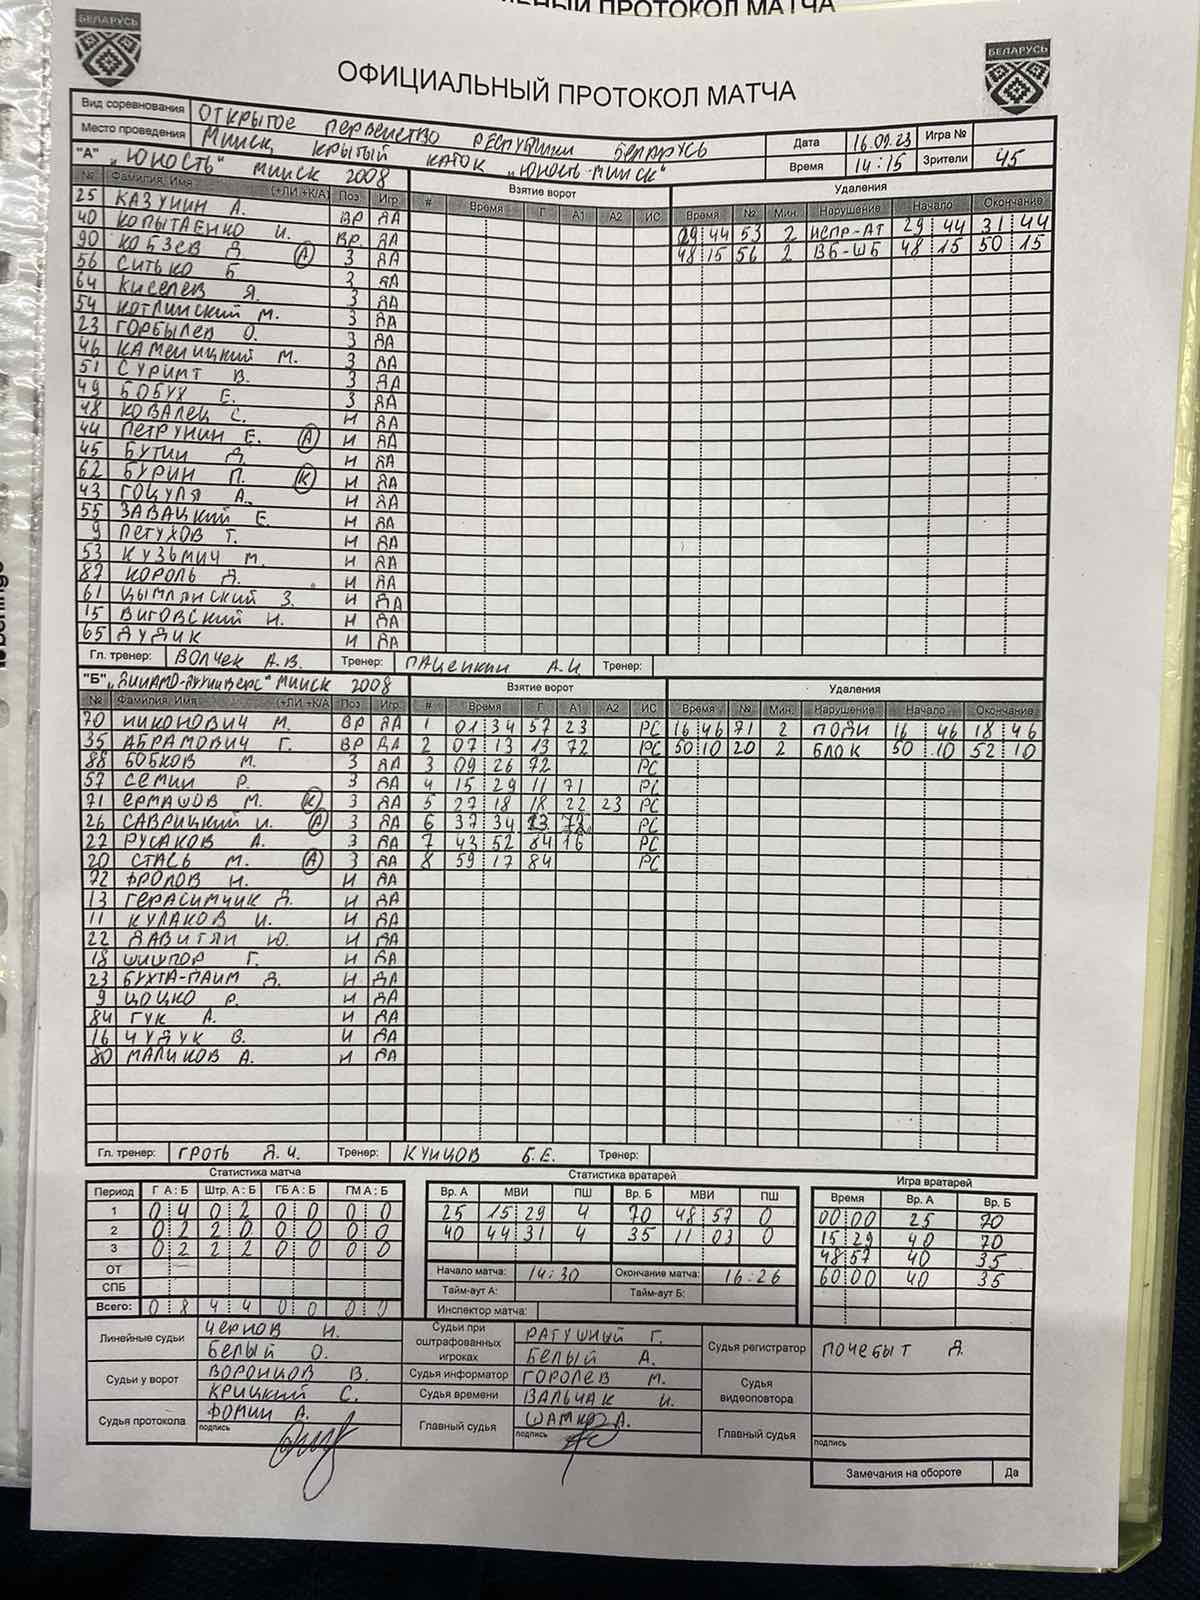 ЬНЫЙ ПРОТОКОЛ МАТЧА
БЕЛАРУСЬ
БЕЛАРУСЬ
ОФИЦИАЛЬНЫЙ ПРОТОКОЛ МАТЧА
Вид соревнования ОТКРЫТОЕ ПЕРВЕНСТВО РЕСПУБЛИКИ БЕЛАРУСЬ Дата 16.09.23 Игра №
Место проведения МИНСК, КРЫТЫЙ КАТОК "ЮНОСТЬ-МИНСК" Время 14:15 Зрители 45
"А" "ЮНОСТЬ" МИНСК 2008 Взятие ворот Удаления
№ Фамилия, Имя (+ЛИ +К/А) Поз Игр # Время Г А1 А2 ИС Время № Мин. Нарушение Начало Окончание
25 КАЗУНИН А. ВР ДА 29 44 53 2 НСПР-АТ 29 44 31 44
40 КОПЫТАЕНКО И. ВР ДА 48 15 56 2 ВБ-ШБ 48 15 50 15
90 КОБЗЕВ Д. (А) З ДА
56 СИТЬКО Б З ДА
64 КИСЕЛЕВ Я. З ДА
54 КОТЛИНСКИЙ М. З ДА
23 ГОРБЫЛЕВ О. З ДА
46 КАМЕНИЦКИЙ М. З ДА
51 СУРИНТ В. З ДА
49 БОБУХ Е. З ДА
48 КОВАЛЕЦ С. Н ДА
44 ПЕТРУНИН Е. (А) Н ДА
45 БУТИН Д. Н ДА
62 БУРИН П. (К) Н ДА
43 ГОЦУЛЯ А. Н ДА
55 ЗАВАЦКИЙ Е. Н ДА
9 ПЕТУХОВ Т. Н ДА
53 КУЗЬМИЧ М. Н ДА
87 КОРОЛЬ Д. Н ДА
61 ЦЫМЛЯНСКИЙ З. Н ДА
15 ВИГОВСКИЙ Н. Н ДА
65 ДУДИК Н ДА
Гл. тренер: ВОЛЧЕК А.В. Тренер: ПАЦЕНКИН А.И. Тренер:
"Б" МИНСК 2008 Взятие ворот Удаления
№ Фамилия, Имя (+ЛИ +К/А) Поз Игр # Время Г А1 А2 ИС Время № Мин. Нарушение Начало Окончание
70 НИКОНОВИЧ М. ВР ДА 1 01 34 57 23 РС 16 46 71 2 ПОДН 16 46 18 46
35 АБРАМОВИЧ Г. ВР ДА 2 07 13 13 72 РС 50 10 20 2 БЛОК 50 10 52 10
88 БОБКОВ М. З ДА 3 09 26 72 РС
57 СЕМИН Р. З ДА 4 15 29 11 71 РС
71 ЕРМАШОВ М. (К) З ДА 5 27 18 18 22 23 РС
26 САВРИЦКИЙ И. (А) З ДА 6 37 34 13 72 РС
27 РУСАКОВ А. З ДА 7 43 52 84 16 РС
20 СТАСЬ М. (А) З ДА 8 59 17 84 РС
72 ФРОЛОВ Н. Н ДА
13 ГЕРАСИМЧИК Д. Н ДА
11 КУЛАКОВ И. Н ДА
22 ДАВИТЯН Ю. Н ДА
18 ШИШПОР Г. Н ДА
23 БУХТА-ПАИМ Д. Н ДА
9 ЦОЦКО Р. Н ДА
84 ГУК А. Н ДА
16 ЧУДУК В. Н ДА
80 МАЛИКОВ А. Н ДА
Гл. тренер: ГРОТЬ Д.Ч. Тренер: КУНЦОВ Б.Е. Тренер:
Статистика матча Статистика вратарей Игра вратарей
Период Г А : Б Штр. А : Б ГБ А : Б ГМ А : Б Вр. А МВИ ПШ Вр. Б МВИ ПШ Время Вр. А Вр. Б
1 0 4 0 2 0 0 0 0 25 15 29 4 70 48 57 0 00:00 25 70
2 0 2 2 0 0 0 0 0 40 44 31 4 35 11 03 0 15 29 40 70
3 0 2 2 2 0 0 0 0 48:57 40 35
ОТ Начало матча: 14:30 Окончание матча: 16:26 60:00 40 35
СПБ Тайм-аут А: Тайм-аут Б:
Всего: 0 8 4 4 0 0 0 0 Инспектор матча:
Линейные судьи ЧЕРНОВ Н. Судьи при оштрафованных игроках РАТУШНЫЙ Г. Судья регистратор ПОЧЕБЫТ Д.
БЕЛЫЙ О. БЕЛЫЙ А.
Судьи у ворот ВОРОНЦОВ В. Судья информатор ГОРОЛЕВ М. Судья видеоповтора
КРИЦКИЙ С. Судья времени ВАЛЬЧАК И.
Судья протокола ФОМИН А. Главный судья ШАМКО А. Главный судья
подпись подпись подпись
Замечания на обороте Да